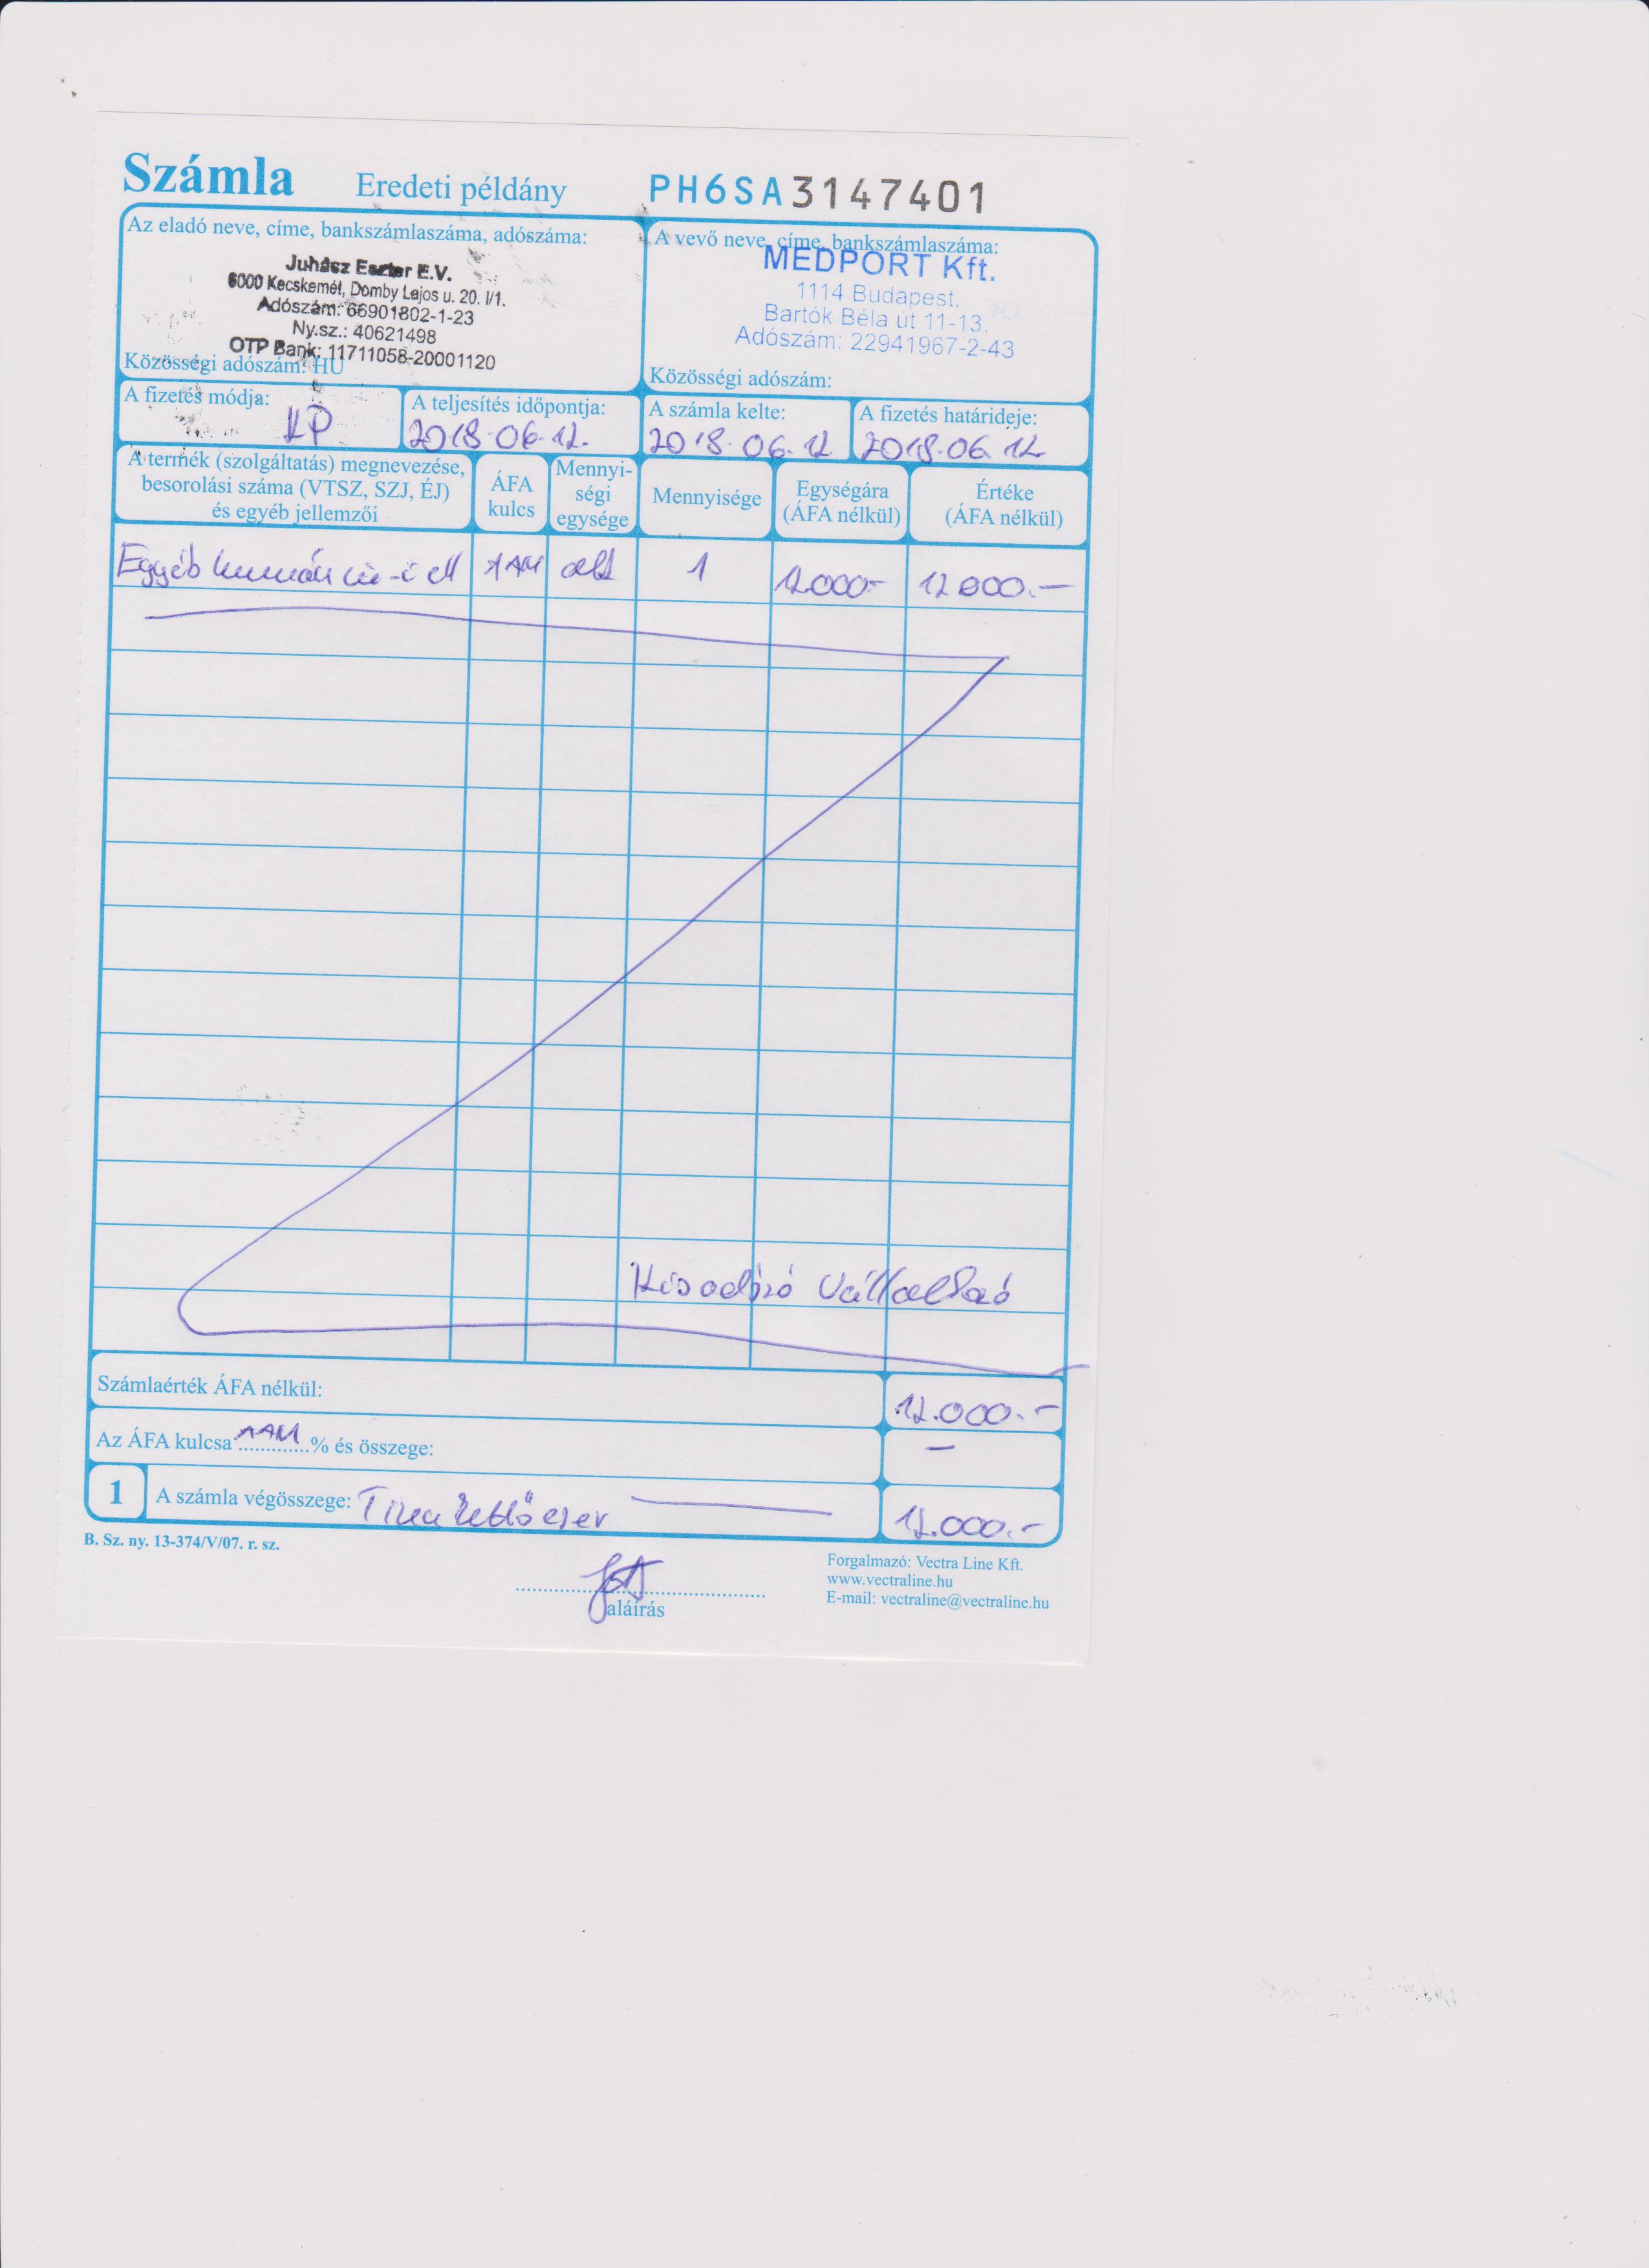 Számla Eredeti példány PH6SA3147401
Az eladó neve, címe, bankszámlaszáma, adószáma:
Juhász Eszter E.V.
6000 Kecskemét, Domby Lajos u. 20. I/1.
Adószám: 66901802-1-23
Ny.sz.: 40621498
OTP Bank: 11711058-20001120
Közösségi adószám: HU
A vevő neve, címe, bankszámlaszáma:
MEDPORT Kft.
1114 Budapest,
Bartók Béla út 11-13.
Adószám: 22941967-2-43
Közösségi adószám:
A fizetés módja:
KP
A teljesítés időpontja:
2018.06.12.
A számla kelte:
2018.06.12
A fizetés határideje:
2018.06.12
A termék (szolgáltatás) megnevezése,
besorolási száma (VTSZ, SZJ, ÉJ)
és egyéb jellemzői
ÁFA
kulcs
Mennyi-
ségi
egysége
Mennyisége
Egységára
(ÁFA nélkül)
Értéke
(ÁFA nélkül)
Egyéb humán eü-i ell AAM alk 1 12000.- 12000.-
Kisadózó Vállalkozó
Számlaérték ÁFA nélkül: 12.000.-
Az ÁFA kulcsa AAM % és összege: -
1 A számla végösszege: Tizenkettőezer 12.000.-
B. Sz. ny. 13-374/V/07. r. sz.
aláírás
Forgalmazó: Vectra Line Kft.
www.vectraline.hu
E-mail: vectraline@vectraline.hu